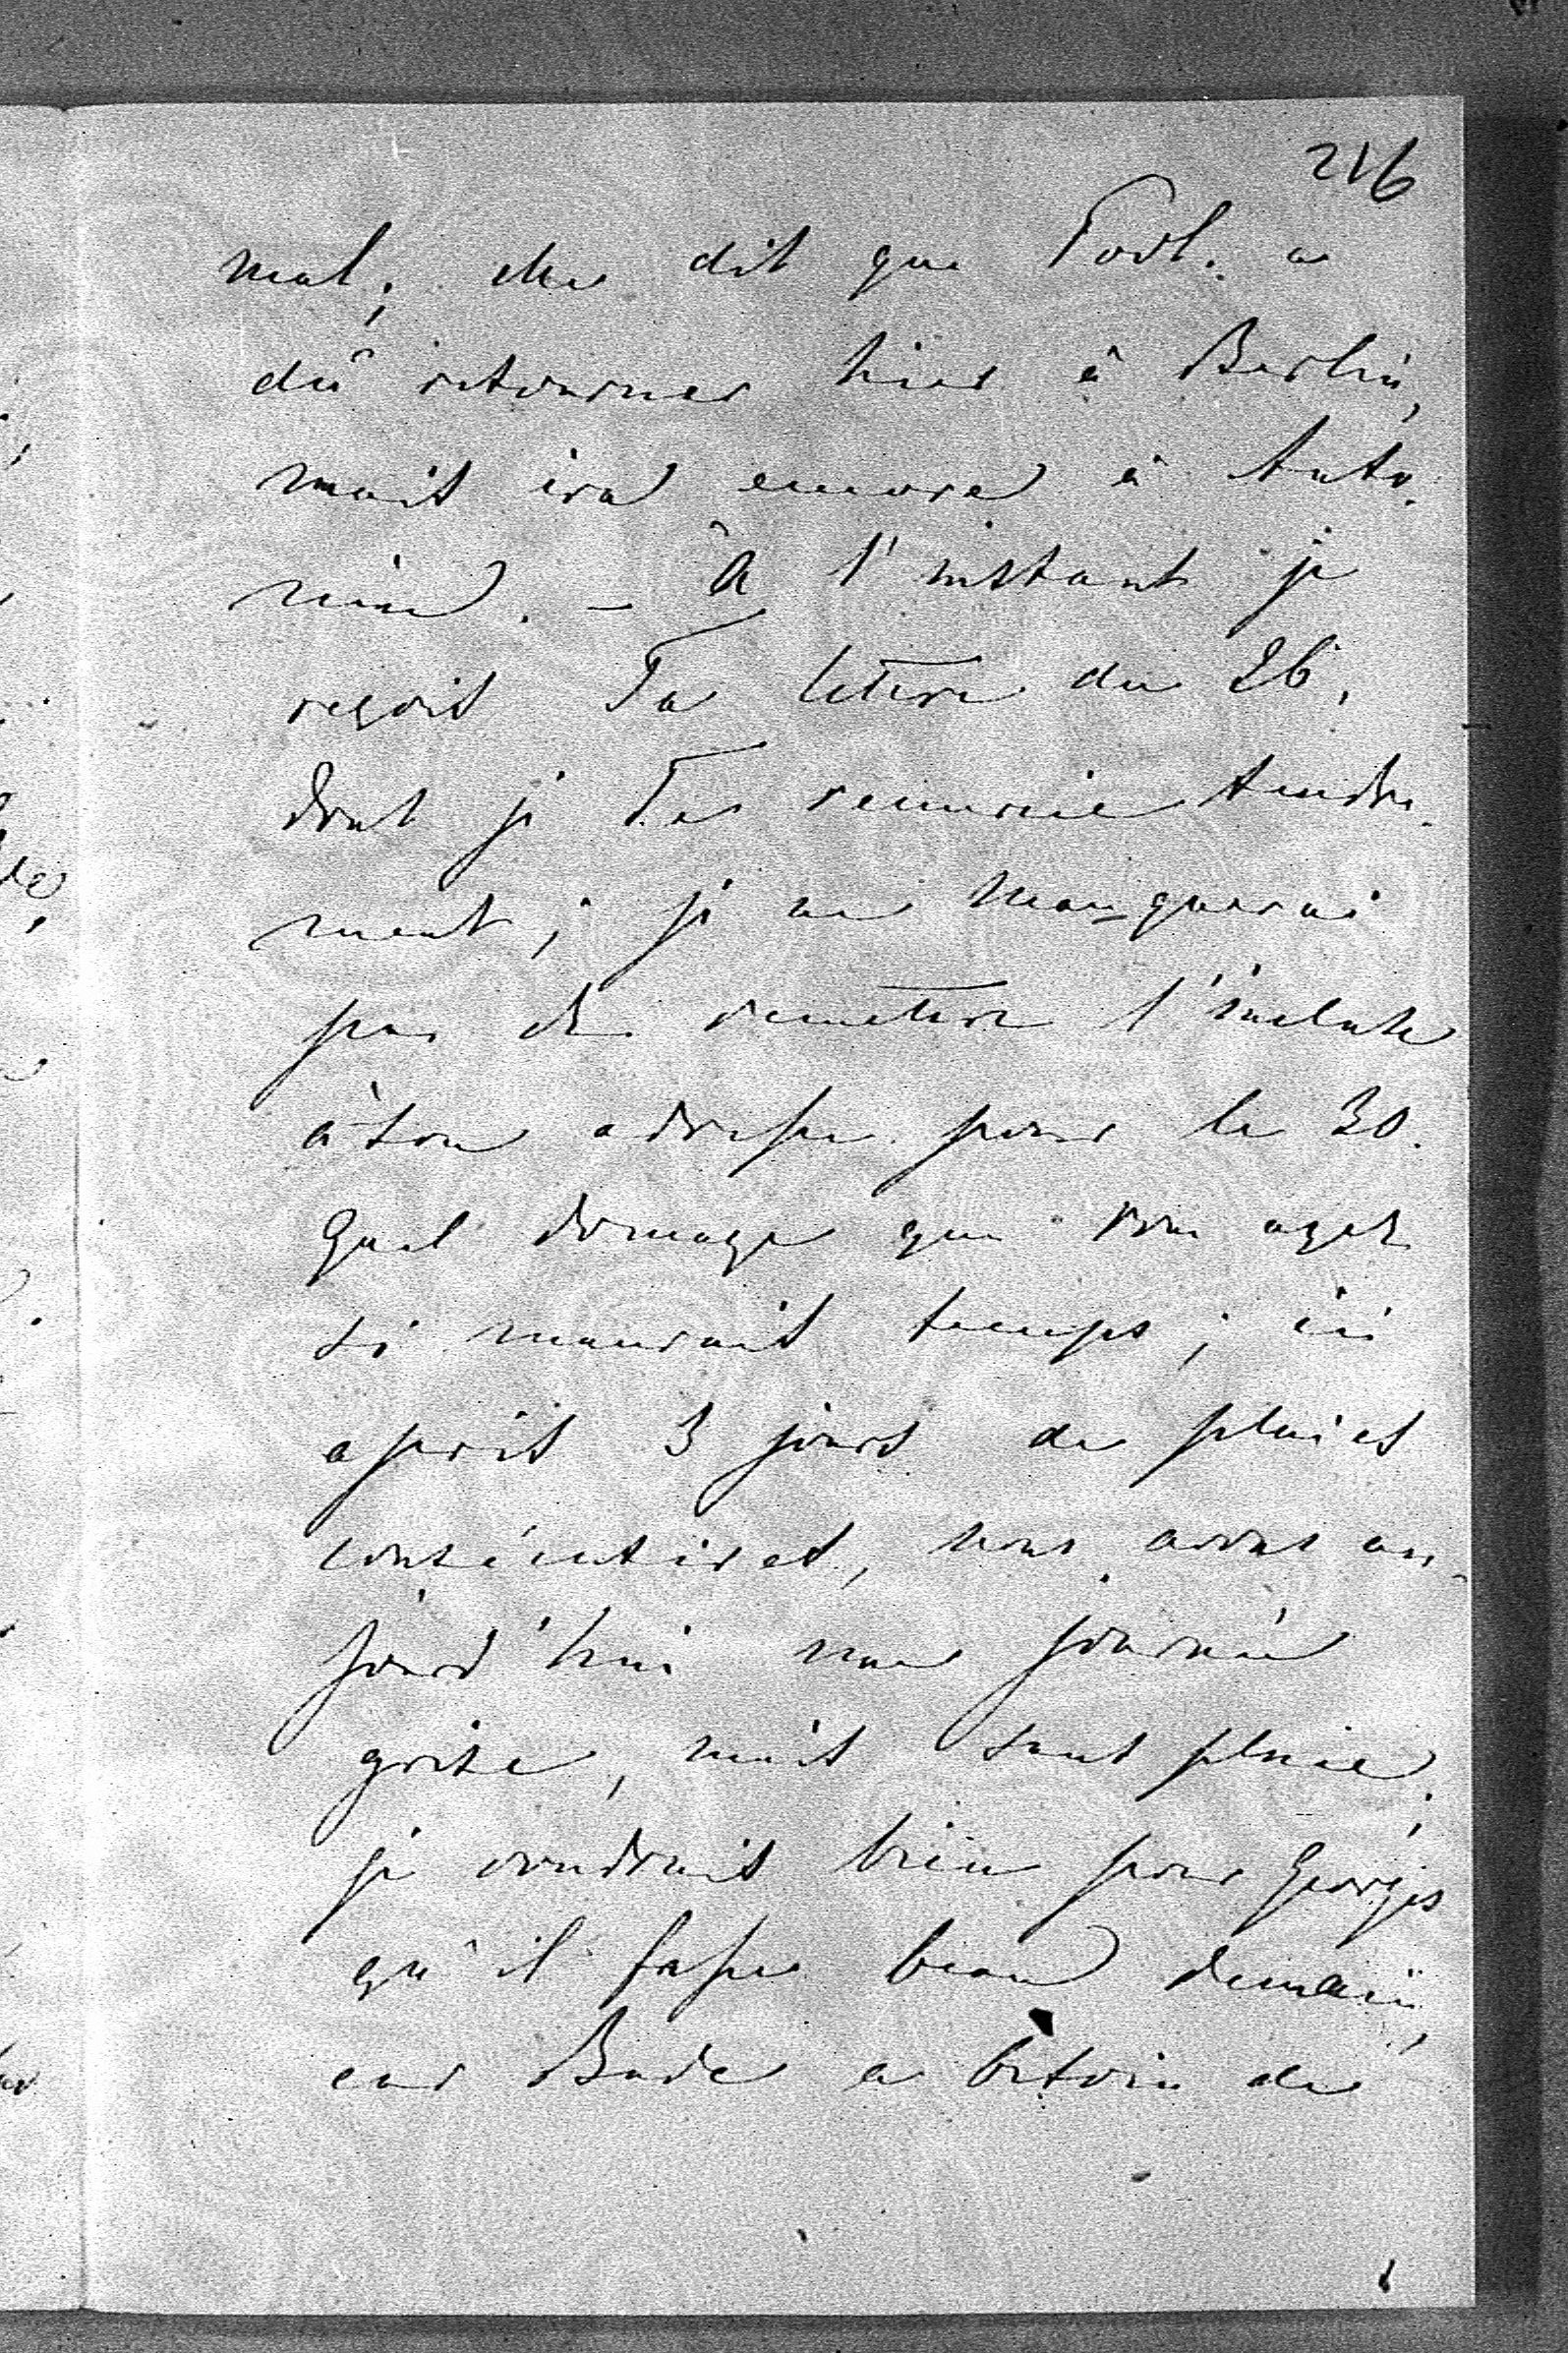 216
mal; elle dit que Bosl. a
dû retourner hier à Berlin,
mais ira encore à Anto-
nin. – À l'instant je
reçois Ta lettre du 26,
dont je Te remercie tendre-
ment; je ne manquerai
pas de remettre l'incluse
à son adresse pour le 30.
Quel domage que vous ayez
si mauvais temps; ici
après 3 jours de pluies
consécutives, nous avons au-
jourd'hui une journée
grise, mais sans pluie;
je voudrais bien pour Georges
qu'il fasse beau demain,
car Bade a besoin de